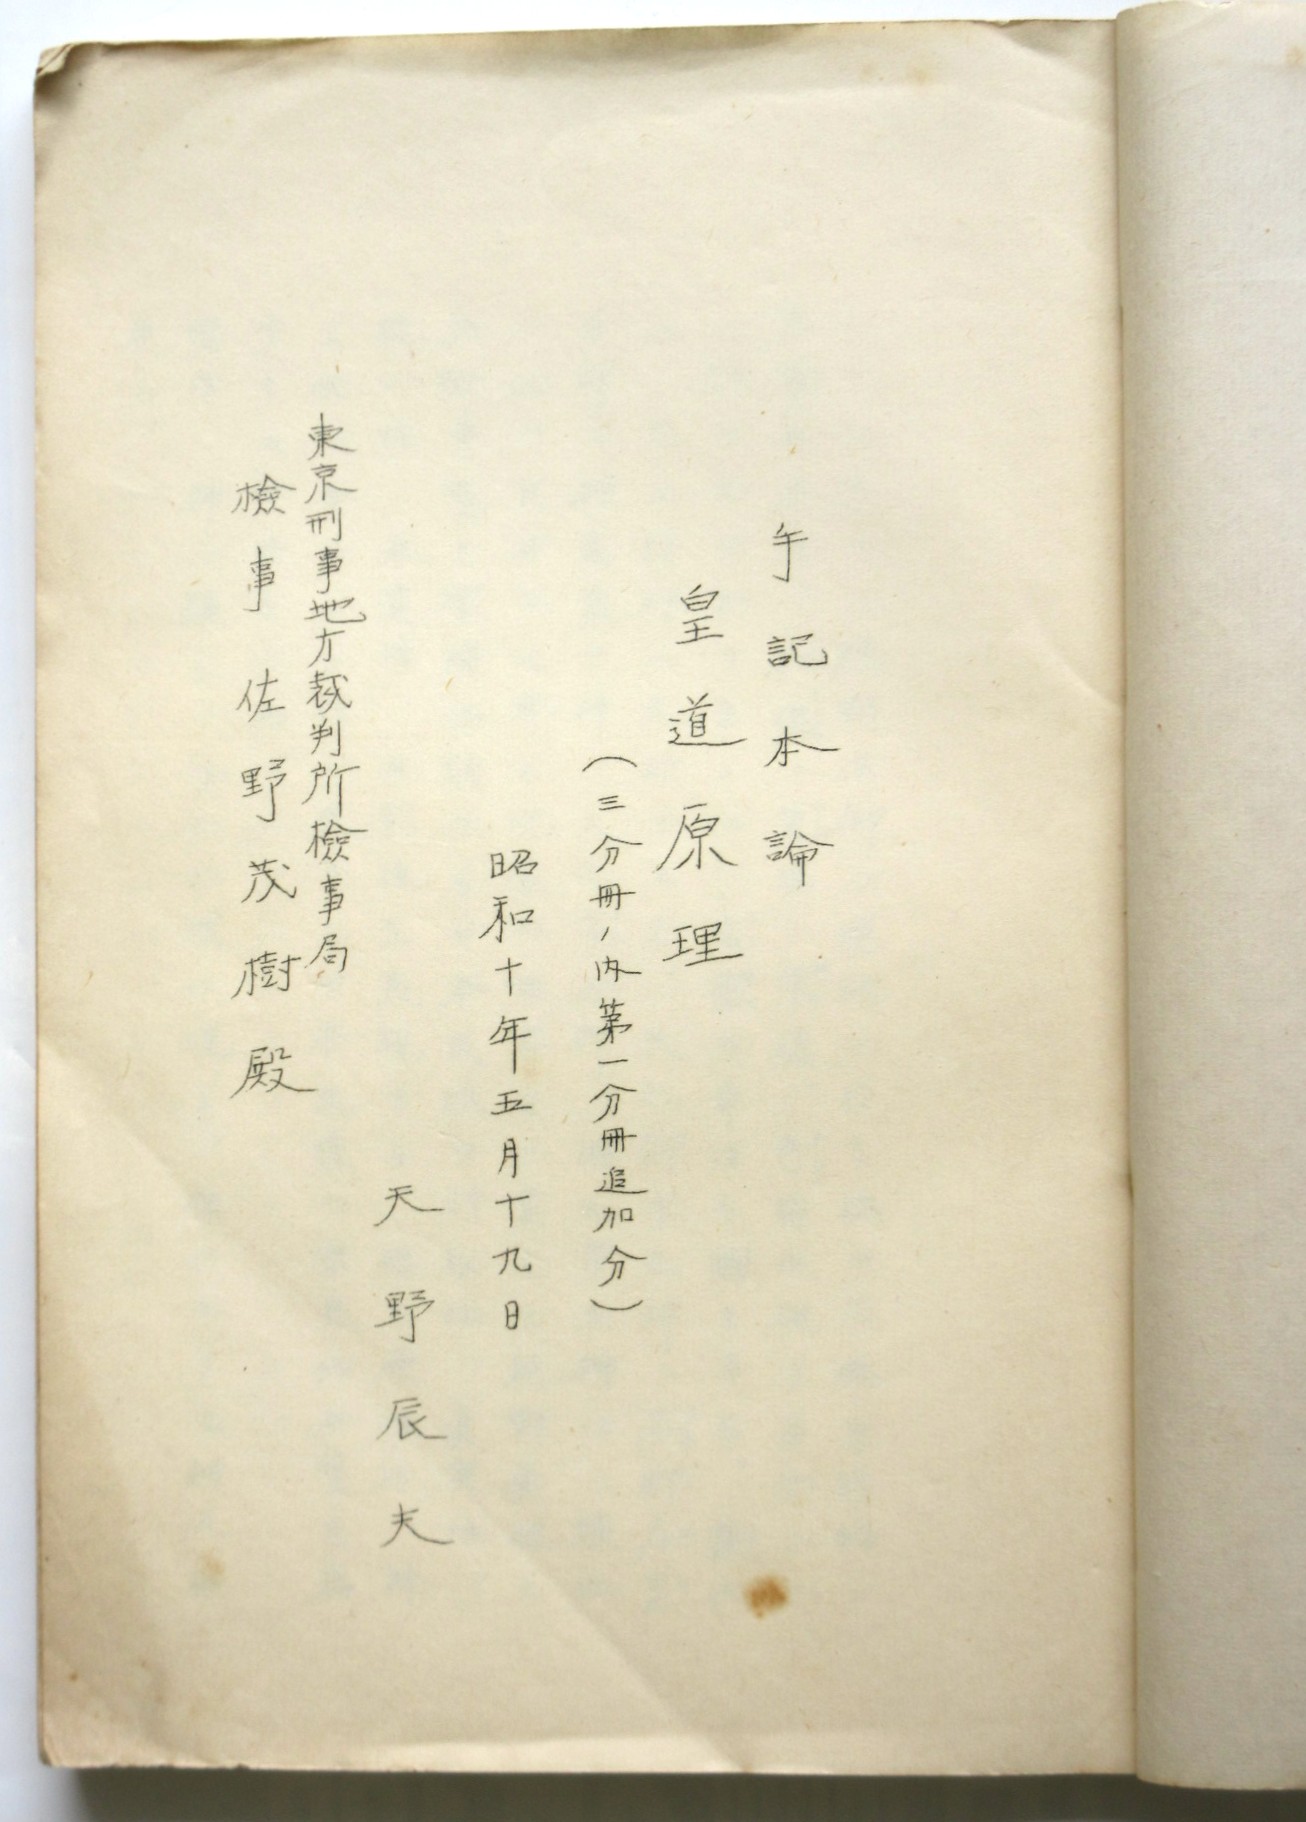 手記本論
皇道原理
(三分冊ノ内第一分冊追加分)
昭和十年五月十九日
天野辰夫
東京刑事地方裁判所檢事局
檢事 佐野茂樹殿